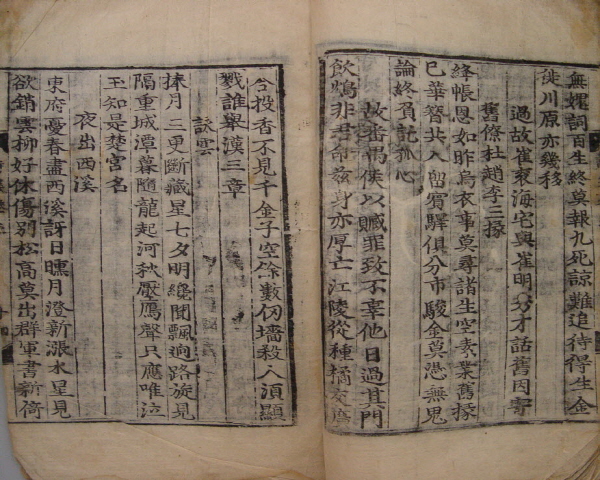 無媿詞百生終莫報九死諒難追待得生金
後川原亦幾移
過故崔兗海宅與崔明秀才話舊因寄
舊僚杜趙李三掾
絳帳恩如昨烏衣事莫尋諸生空舊掾
已華簪共入留賔驛俱分市駿金莫憑無鬼
論終負託孤心
故番禺侯以贓罪致不辜他日過其門
飲鴆非君命茲身亦厚亡江陵從種橘交廣
合投香不見千金子空餘數仞墻殺人須顯
戮誰舉漢三章
詠雲
捧月三更斷藏星七夕明纔聞飄迥路旋見
隔重城潭暮隨龍起河秋壓鴈聲只應唯宋
玉知是楚宮名
夜出西溪
東府憂春盡西溪許日曛月澄新漲水星見
欲銷雲柳好休傷別松高莫出群軍書雖倚